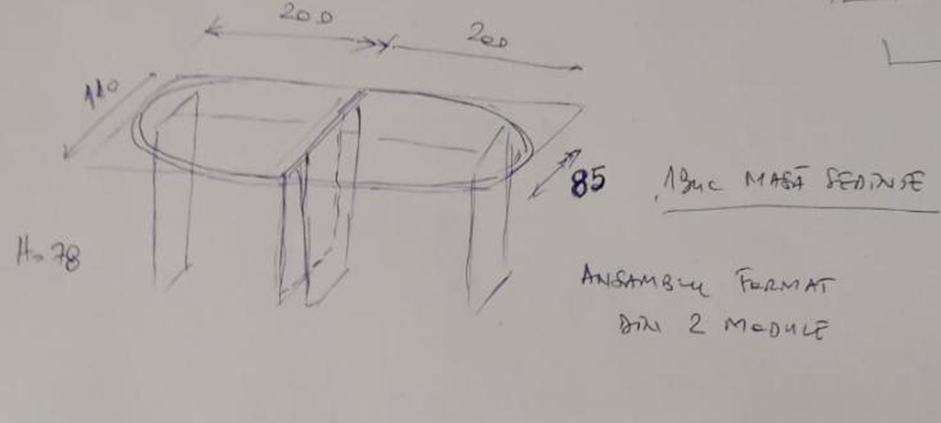 200
200
110
85
1 Buc MASĂ ȘEDINȚE
H=78
ANSAMBLU FORMAT
DIN 2 MODULE